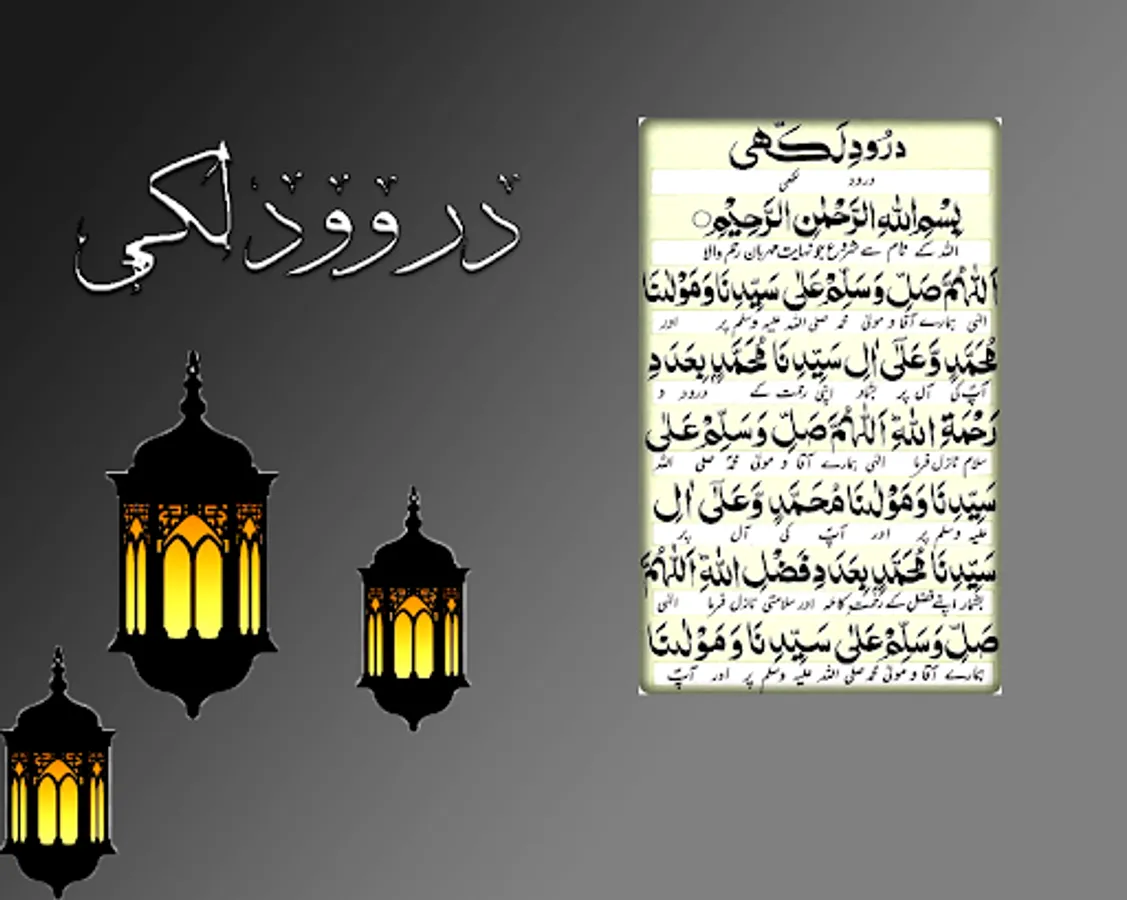 دروود لکی
درُود لَکھی
درود لکھی
بِسْمِ اللّٰهِ الرَّحْمٰنِ الرَّحِيْمِ
اللہ کے نام سے شروع جو نہایت مہربان رحم والا
اَللّٰهُمَّ صَلِّ وَسَلِّمْ عَلٰى سَيِّدِنَا وَمَوْلٰنَا
الٰہی ہمارے آقا و مولیٰ محمد صلی اللہ علیہ وسلم پر اور
مُحَمَّدٍ وَّعَلٰٓى اٰلِ سَيِّدِنَا مُحَمَّدٍ بِعَدَدِ
آپ کی آل پر بشمار اپنی رحمت کے درود و
رَحْمَةِ اللّٰهِ اَللّٰهُمَّ صَلِّ وَسَلِّمْ عَلٰى
سلام نازل فرما الٰہی ہمارے آقا و مولیٰ محمد صلی اللہ
سَيِّدِنَا وَمَوْلٰنَا مُحَمَّدٍ وَّعَلٰٓى اٰلِ
علیہ وسلم پر اور آپ کی آل پر
سَيِّدِنَا مُحَمَّدٍ بِعَدَدِ فَضْلِ اللّٰهِ اَللّٰهُمَّ
بشمار اپنے فضل کے رحمت کاملہ اور سلامتی نازل فرما الٰہی
صَلِّ وَسَلِّمْ عَلٰى سَيِّدِنَا وَمَوْلٰنَا
ہمارے آقا و مولیٰ محمد صلی اللہ علیہ وسلم پر اور آپ